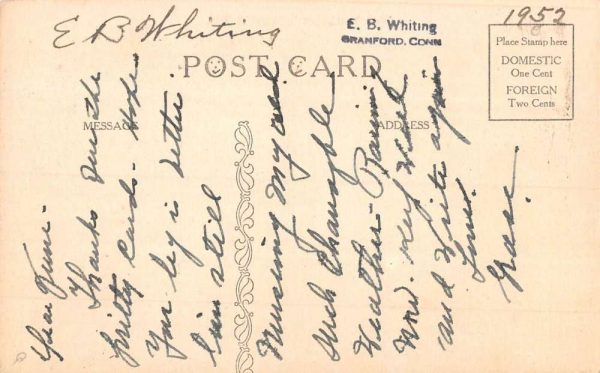 E B Whiting
E. B. Whiting
BRANFORD, CONN
1952
POST CARD
MESSAGE
ADDRESS
Place Stamp here
DOMESTIC
One Cent
FOREIGN
Two Cents
Dear
Thanks for the
pretty cards - Hope
your leg is better
I'm still
nursing my cold
such changeable
weather - Raining
now. Keep well
and write again
Love
Grace